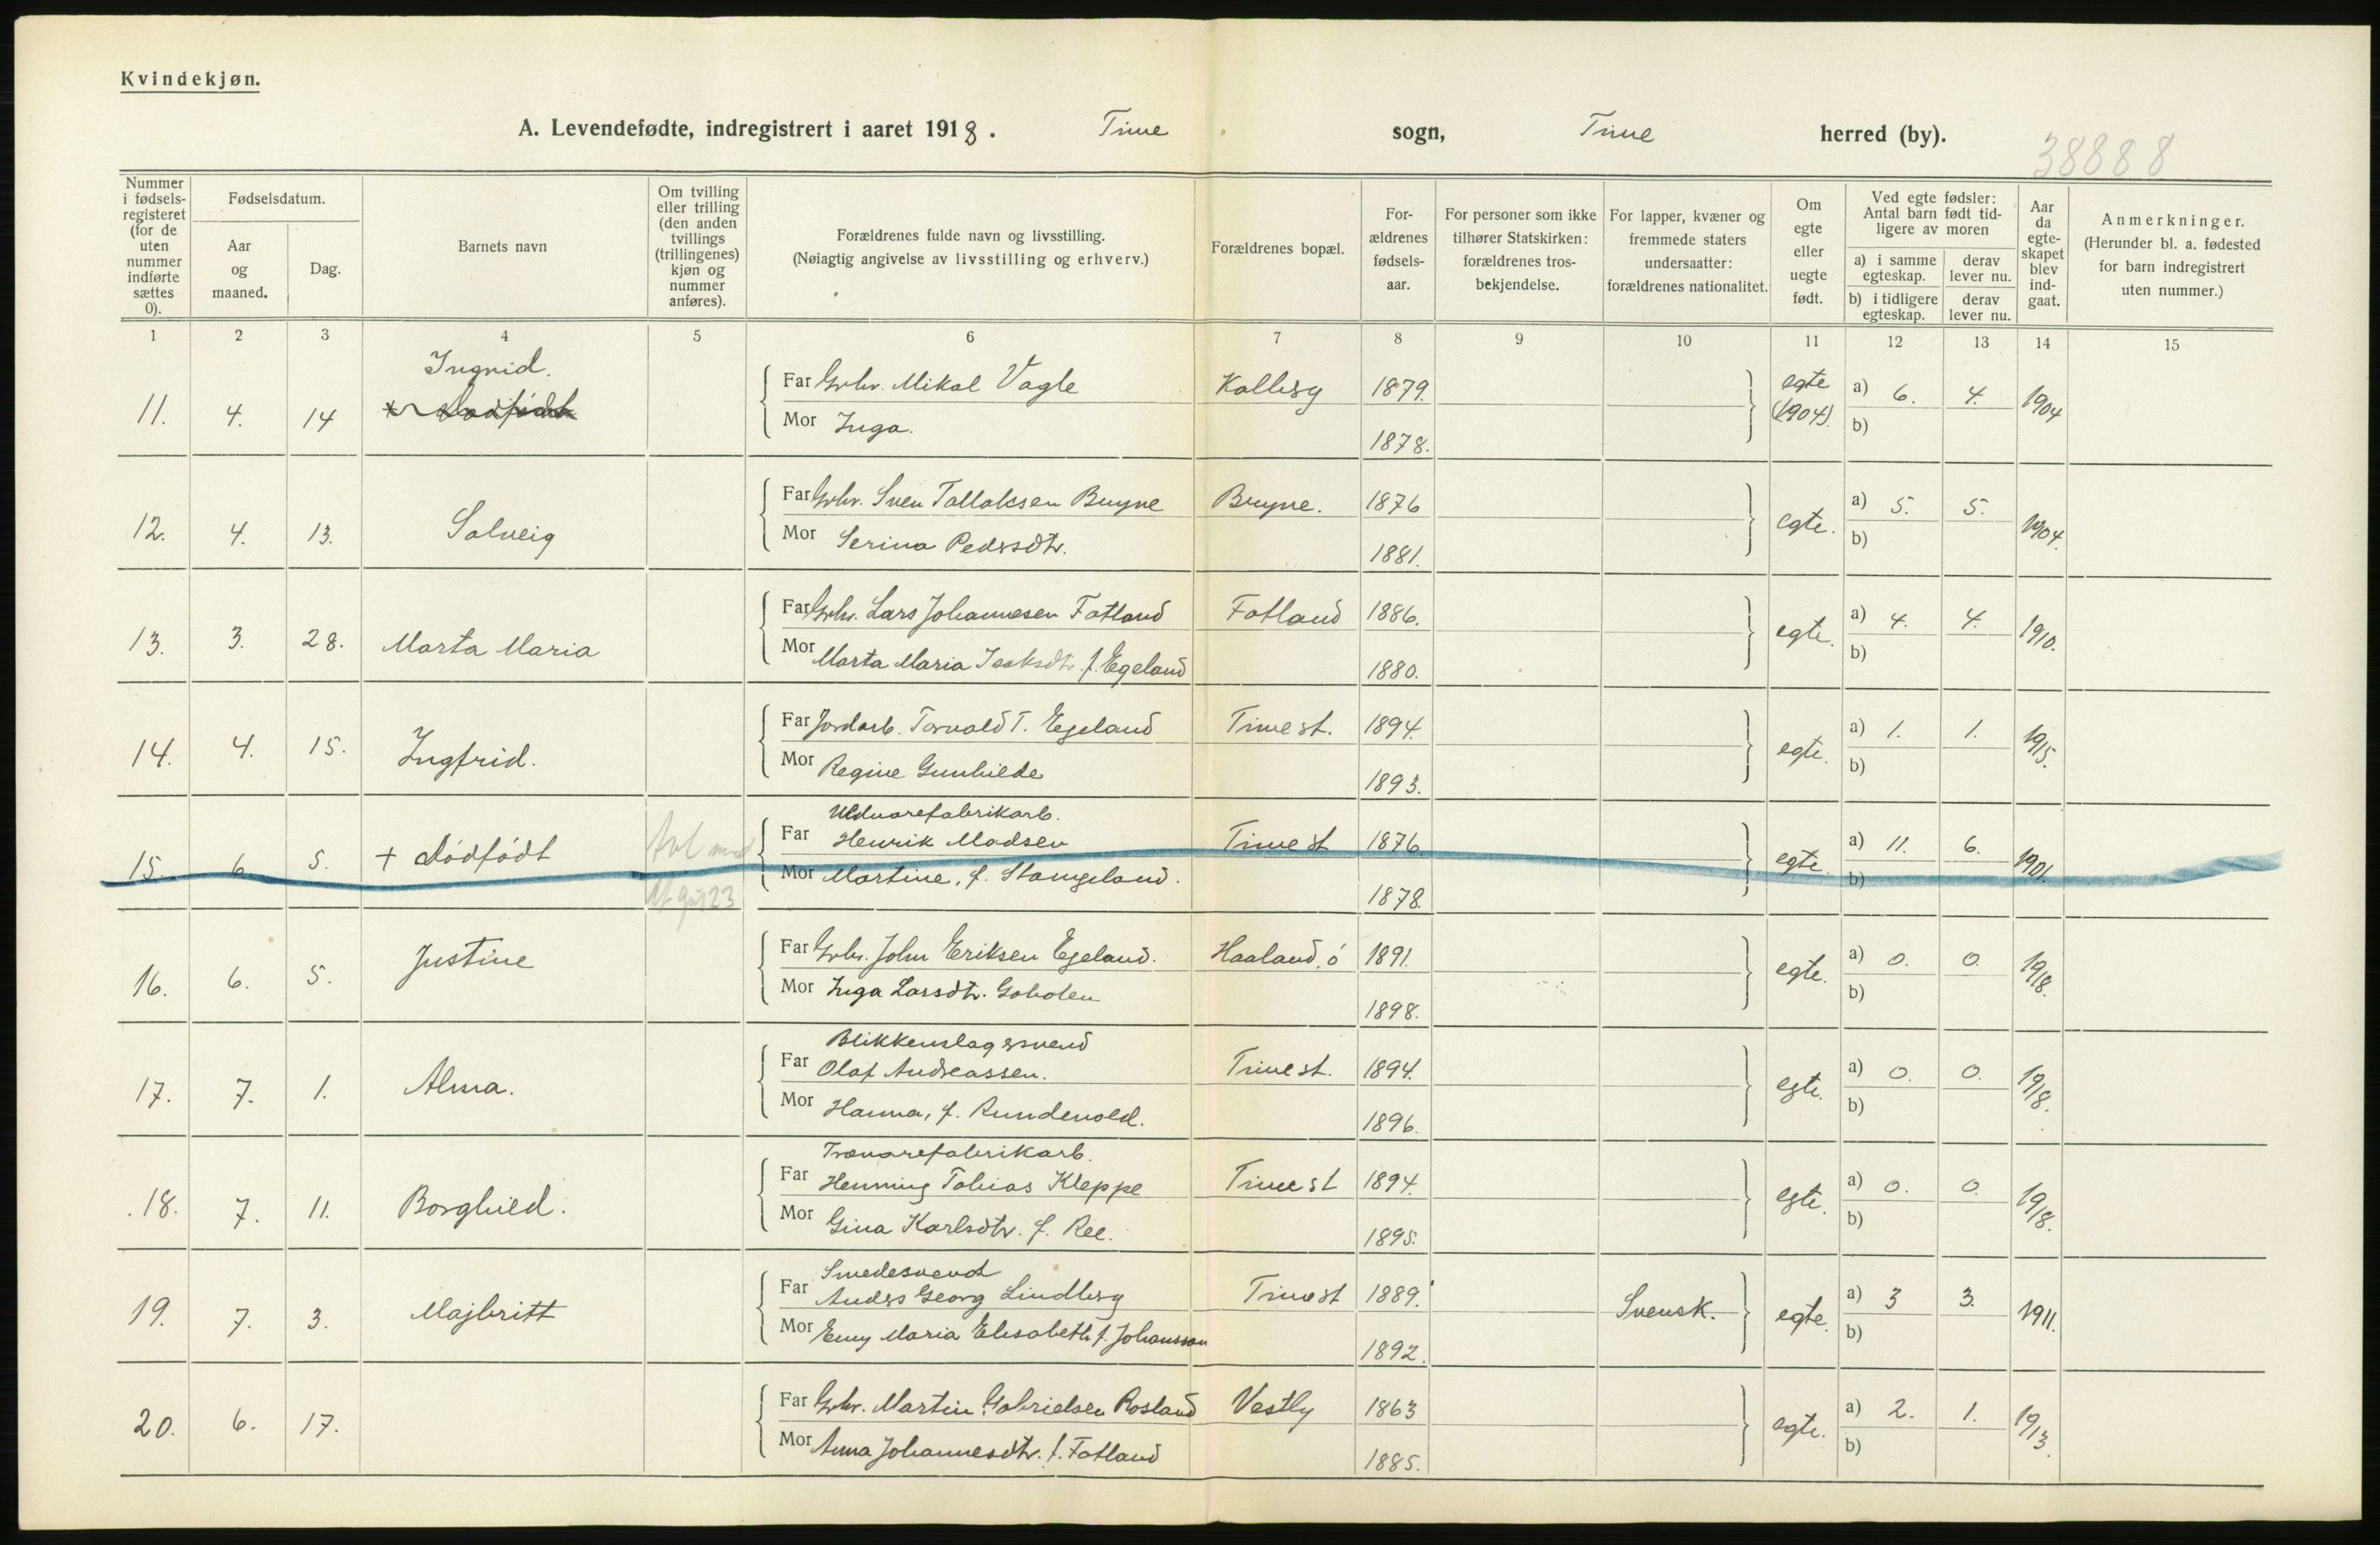 Kvindekjøn.
A. Levendefødte, indregistrert i aaret 1918. Time sogn, Time herred (by).
38888
Nummer i fødsels-registeret (for de uten nummer indførte sættes 0).
Fødselsdatum.
Aar og maaned.
Dag.
Barnets navn
Om tvilling eller trilling (den anden tvillings (trillingenes) kjøn og nummer anføres).
Forældrenes fulde navn og livsstilling.
(Nøiagtig angivelse av livsstilling og erhverv.)
Forældrenes bopæl.
For-ældrenes fødsels-aar.
For personer som ikke tilhører Statskirken: forældrenes tros-bekjendelse.
For lapper, kvæner og fremmede staters undersaatter: forældrenes nationalitet.
Om egte eller uegte født.
Ved egte fødsler: Antal barn født tid-ligere av moren
a) i samme egteskap.
derav lever nu.
b) i tidligere egteskap.
derav lever nu.
Aar da egte-skapet blev ind-gaat.
Anmerkninger.
(Herunder bl. a. fødested for barn indregistrert uten nummer.)
1 2 3 4 5 6 7 8 9 10 11 12 13 14 15
Ingrid.
11. 4. 14 Dødfødt Far Grbr. Mikal Vagle Kalberg 1879. egte (1904). a) 6. 4. 1904
Mor Inga. 1878. b)
12. 4. 13. Solveig Far Grbr. Sven Tallaksen Bryne Bryne. 1876 egte. a) 5. 5. 1904.
Mor Serina Pedersdtr. 1881. b)
13. 3. 28. Marta Maria Far Grbr. Lars Johannesen Fotland Fotland 1886. egte. a) 4. 4. 1910.
Mor Marta Maria Isaksdtr. f. Egeland 1880. b)
14. 4. 15. Ingfrid. Far Jordarb. Torvald T. Egeland Time st. 1894. egte. a) 1. 1. 1915.
Mor Regine Gunhilde 1893. b)
Uldvarefabrikarb.
15. 6 5. + dødfødt Far Henrik Madsen Time st 1876. egte. a) 11. 6. 1901.
Mor Martine, f. Stangeland. 1878. b)
16. 6. 5. Justine Far Grbr. John Eriksen Egeland. Haaland, ø 1891. egte. a) 0. 0. 1918.
Mor Inga Larsdtr. Goholen 1898. b)
Blikkenslagersvend
17. 7. 1. Alma. Far Olaf Andreassen. Time st. 1894. egte. a) 0. 0. 1918.
Mor Hanna, f. Rundevold. 1896. b)
Trævarefabrikarb.
18. 7. 11. Borghild. Far Henning Tobias Kleppe Time st 1894. egte. a) 0. 0. 1918.
Mor Gina Karlsdtr. f. Ree. 1895. b)
Smedesvend
19. 7. 3. Majbritt Far Anders Georg Lindberg Time st 1889. Svensk. egte. a) 3 3. 1911.
Mor Emy Maria Elisabeth f. Johansson 1892. b)
20. 6. 17. Far Grbr. Martin Gabrielsen Rosland Vestly 1863 egte. a) 2. 1. 1913.
Mor Anna Johannesdtr. f. Fotland 1885. b)